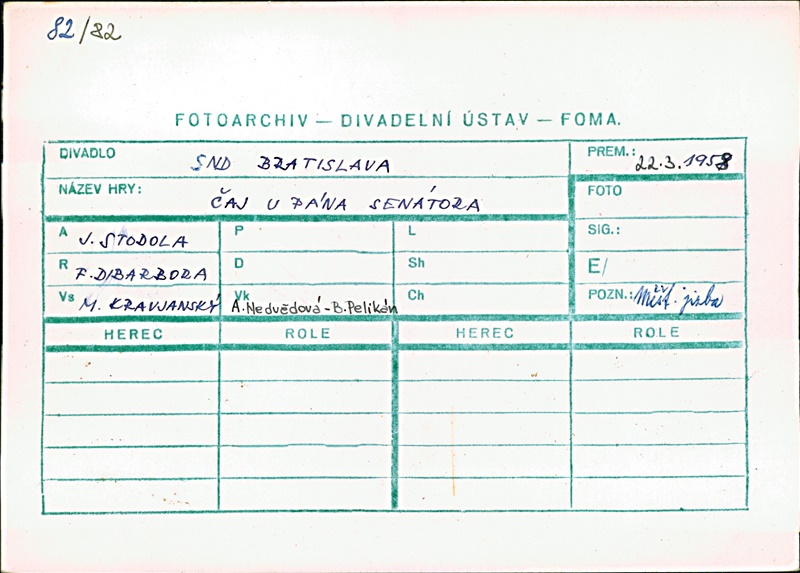 82/82
FOTOARCHIV — DIVADELNÍ ÚSTAV — FOMA.
DIVADLO SND BRATISLAVA PREM.: 22.3.1958
NÁZEV HRY: ČAJ U PÁNA SENÁTORA FOTO
A J. STODOLA P L SIG.:
R F. DIBARBORA D Sh E/
Vs M. KRAVJANSKÝ Vk A. Nedvědová - B. Pelikán Ch POZN.: jizba
HEREC ROLE HEREC ROLE